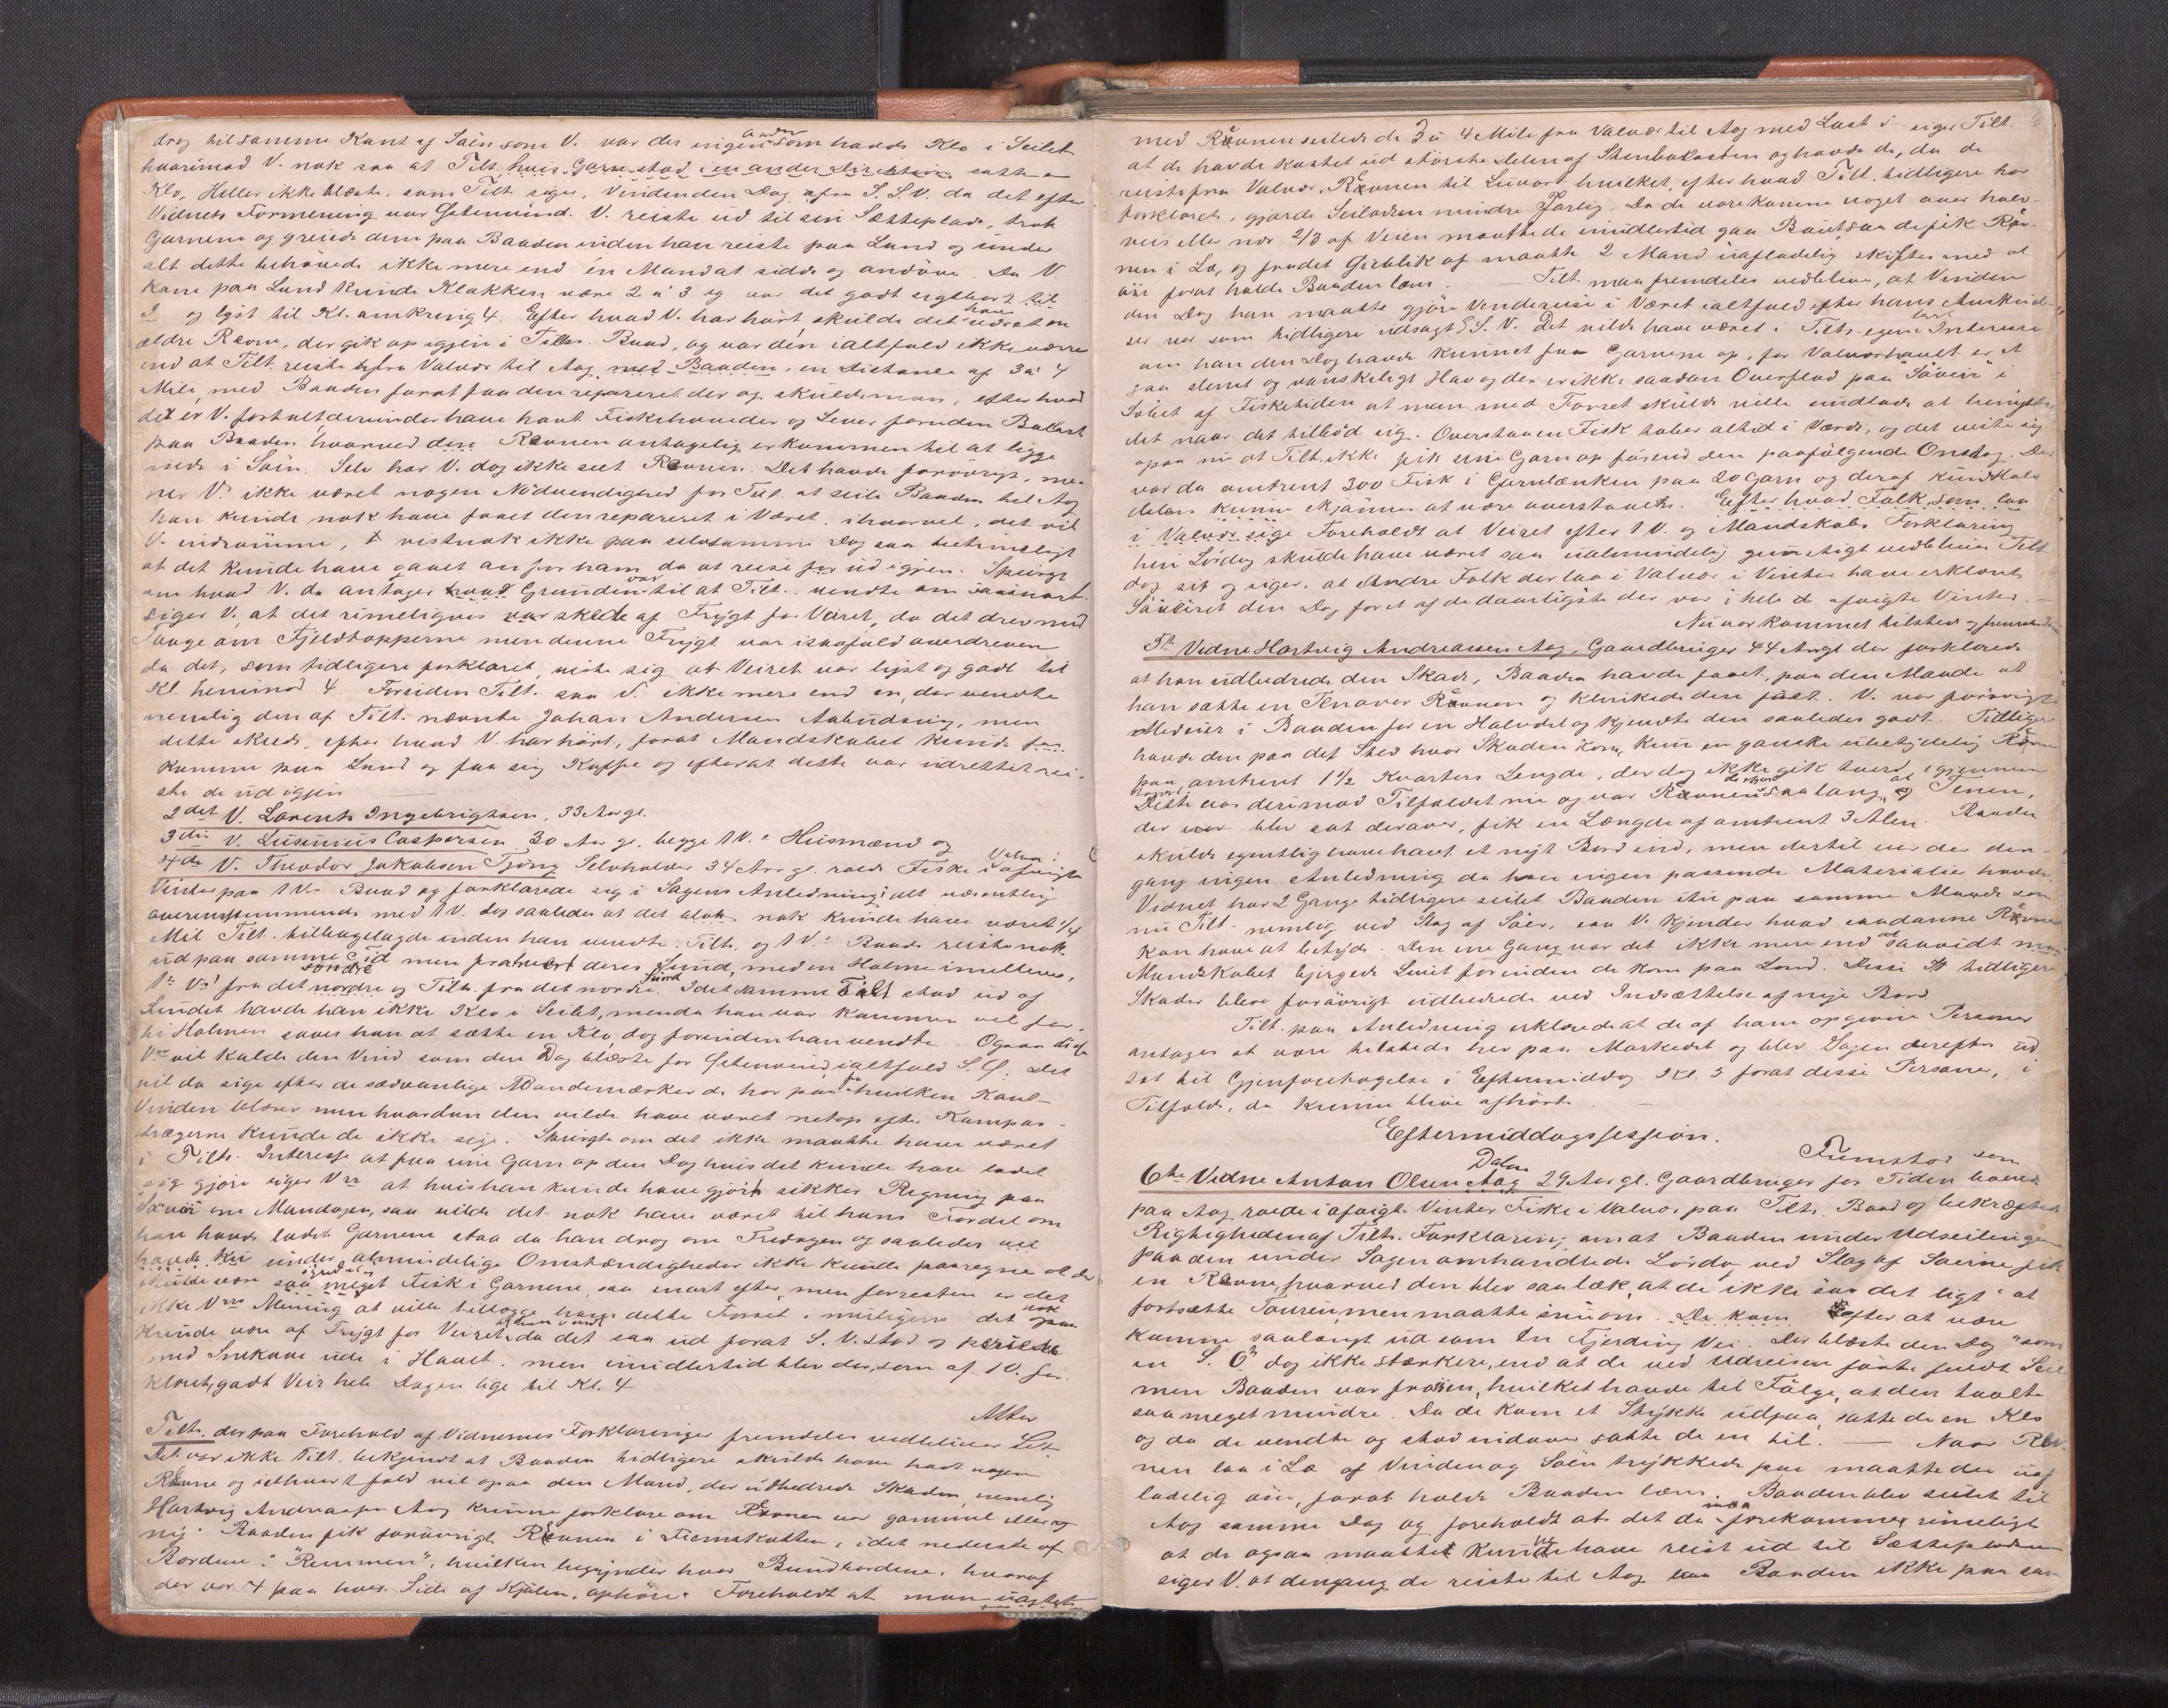 drog til samme Kant af Söen som V. var der ingen anden som havde Klo i Seilet
hvorimod V. nok saa at Tilt. hvis Garn stod i en anden Direktion satte en
Klo. Heller ikke blæste, som Tilt. siger, Vinden den Dag fra S.S.V. da det efter
Vidnets Formening var Östenvind. V. reiste ud til sin Sætteplads, trak
Garnene og greiede dem paa Baaden inden han reiste paa Land og under
alt dette behövede ikke mere end én Mand at sidde og andöve. Da V.
kom paa Land kunde Klokken være 2 à 3 og var det godt sigtbart til
2 og lyst til Kl. omkring 4. Efter hvad V. har hört skulde det have været en
ældre Revne, der gik op igjen i Tiltes Baad, og var den ialtfald ikke værre
end at Tilt. reiste fra Valvær til Aag med Baaden, en Distance af 3 à 4
Mile, med Baaden forat faa den repareret der og skulde man, efter hvad
det er V. fortalt, derunder have havt Fiskehoveder og Lever foruden Ballast
paa Baaden hvorved den Revnen antagelig er kommen til at ligge
nede i Söen. Selv har V. dog ikke seet Revnen. Det havde forövrigt, me-
ner V. ikke været nogen Nödvendighed for Tilt. at seile Baaden til Aag
han kunde nok have faaet den repareret i Været, ihvorvel, det vil
V. indrömme, vistnok ikke paa selvsamme Dag saa betimeligt
at det kunde have gaaet an for ham da at reise ud igjen. Spurgt
om hvad V. da antager var Grunden til at Tilt. vendte om saasnart
siger V., at det rimeligvis skede af Frygt for Veiret, da det drev med
Taage om Fjeldtopperne men denne Frygt var isaafald overdreven
da det, som tidligere forklaret, viste sig at Veiret var lyst og godt til
Kl. henimod 4. Foruden Tilt. saa V. ikke mere end en, der vendte
nemlig den af Tilt. nævnte Johan Andersen Aabudsvig, men
dette skede, efter hvad V. har hört, forat Mandskabet kunde
komme paa Land og faa sig Kaffe og efterat dette var udrettet rei-
ste de ud igjen
2det V. Lorents Ingebrigtsen, 33 Aar gl.
3die V. Lusinius Caspersen 30 Aar gl. begge 1 V.s Husmænd og
4de V. Theodor Jakobsen Tjong Selveholder 34 Aar gl. roede Fiske i Valvær i afvigte
Vinter paa 1 V.s Baad og forklarede sig i Sagens Anledning i alt væsentlig
overensstemmende med 1 V. dog saaledes at det nok kunde have været 1/4
Mil Tilt. tilbagelagde inden han vendte. Tilt. og 1 V.s Baade reiste nok
ud paa samme Tid men fra hvert deres Sund, med en Holme imellem,
1te V.s fra det söndre og Tilts. fra det nordre Sund. Idet samme Tilt stod ud af
Sundet havde han ikke Klo i Seilet, men da han var kommen vel for-
bi Holmen saaes han at sætte en Klo, dog forinden han vendte. Ogsaa disse
V.ner vil kalde den Vind som den Dag blæste for Östenvind, ialtfald S. Ö. Det
vil da sige efter de sædvanlige Mandemærker de har paa fra hvilken Kant
Vinden blæser men hvordan den vilde have været netop efter Kompas-
strægerne kunde de ikke sige. Spurgte om det ikke maatte have været
i Tilts. Interesse at faa sine Garn op den Dag hvis det kunde have ladet
sig gjöre siger V.ne at hvis han kunde have gjort sikker Regning paa
Söveir om Mandagen, saa vilde det nok have været til hans Fordel om
han havde ladet Garnene staa da han drog om Fredagen og saaledes vel
under almindelige Omstændigheder ikke kunde paaregne at der
skulde være saa meget Fisk i Garnene saa snart efter, men forresten er det
ikke V.nes Mening at ville tillægge ham dette Forset, muligens det nok ogsaa
kunde være af Frygt for Veiret at han vendte da det saa ud forat S.V. stod og
med Snekave ude i Havet, men imidlertid blev der, som af 1 V. for-
klaret, godt Veir hele Dagen lige til Kl. 4
Atter
Tilte. der paa Forehold af Vidnernes Forklaringer fremdeles vedbliver Sit
Det var ikke Tilt. bekjendt at Baaden tidligere skulde have havt nogen
Revne og iethvert fald vil ogsaa den Mand, der udbedrede Skaden, nemlig
Hartvig Andreassen Aag kunne forklare om Revnen var gammel eller
ny. Baaden fik forövrigt Revnen i Fremskotten, i det nederste af
Bordene: "Remmen", hvilken begynder hvor Bundbordene, hvoraf
der var 4 paa hver Side af Kjölen, ophöre. Foreholdt at man uagtet
med Revnen seilede de 3 à 4 Mile fra Valvær til Aag med Last i siger Tilt.
at de havde kastet ud störste Delen af Stenballasten og havde de, da de
reiste fra Valvær, Revnen til Luvart hvilket, efter hvad Tilt. tidligere har
forklaret, gjorde Seiladsen mindre farlig. Da de vare komne noget over halv-
veis eller nær 2/3 af Veien maatte de imidlertid gaa Bout, saa de fik Rev-
nen i Læ, og fra det Öieblik af maatte 2 Mand uafladelig skiftes med at
öse forat holde Baaden læns. Tilt. maa fremdeles vedblive, at Vinden
den Dag han maatte gjöre Vendereise i Været ialtfald efter hans Anskuel-
ser var som tidligere udsagt S.V. Det vilde have været i Tilts. egen Interesse
om han den Dag havde kunnet faa Garnene op, for Valværhavet er et
saa slemt og vanskeligt Hav og der er ikke saadan Overflod paa "Söveir" i
Löbet af Fisketiden at man med Forset skulde ville undlade at benytte
det naar det tilböd sig. Overstaaen Fisk taber altid i Værdi, og det viste sig
ogsaa nu at Tilt. ikke fik sine Garn op förend den paafölgende Onsdag. Der
var da omtrent 300 Fisk i Garnlænken paa 20 Garn og deraf kunde Halv-
delen kunne skjönnes at være overstaaen. Efter hvad Folk, som laa
i Valvær sige Foreholdt at Veiret efter 1 V. og Mandskabs Forklaring
hin Lördag skulde have været saa ualmindelig gunstigt vedbliver Tilt.
dog sit og siger, at Andre Folk der laa i Valvær i Vinter have erklæret
Söveiret den Dag foret af de daarligste der var i hele afvigte Vinter. —
Nu var kommet tilstede og fremstod
5te Vidne Hartvig Andreassen Aag, Gaardbruger 44 Aar gl. der forklarede
at han udbedrede den Skade, Baaden havde faaet, paa den Maade at
han satte en Ten over Revnen og klinkede den fast. V. var forövrigt
Medeier i Baaden for en Halvdel og kjendte den saaledes godt. Tidligere
havde den paa det Sted hvor Skaden kom, kun en ganske ubetydelig Revne
paa omtrent 1 1/2 Kvarters Længde, der dog ikke gik tvers igjennem
Dette var derimod Tilfældet nu og var Revnen saa lang, at Tenen,
der blev sat derover, fik en Længde af omtrent 3 Alen. Baaden
skulde egentlig have havt et nyt Bord ind, men dertil var der den-
gang ingen Anledning da han ingen passende Materialier havde.
Vidnet har 2 Gange tidligere seilet Baaden itu paa samme Maade som
nu Tilt. nemlig ved Slag af Söer, saa V. kjender hvad saadanne Revner
kan have at betyde. Den ene Gang var det ikke mere end at saavidt
Mandskabet bjergede Livet forinden de kom paa Land. Disse tidligere
Skader bleve forövrigt udbedrede ved Indsættelse af nye Bord.
Tilt. paa Anledning erklærede at de af ham opgivne Personer
antages at være tilstede her paa Markedet og blev Sagen derefter ud
sat til Gjenforetagelse i Eftermiddag Kl. 5 forat disse Personer, i
Tilfælde, da kunne blive afhörte. —
Eftermiddagssession.
Fremstod som
6te Vidne Anton Olsen Dalen Aag 29 Aar gl. Gaardbruger for Tiden
paa Aag, roede i afvigte Vinter Fiske i Valvær paa Tilts. Baad og bekræftede
Rigtigheden af Tilts. Forklaring, om at Baaden under Udseilingen
paa den under Sagen omhandlede Lördag ved Slag af Söerne fik
en Revne, hvorved den blev saa læk, at de ikke saa det ligt at
fortsætte Touren, men maatte snu om. De kom efter at være
komne saalangt ud som en Fjerding Vei. Der blæste den Dag "som
en S. O." dog ikke stærkere, end at de ved Udreisen förte fuldt Seil
men Baaden var frossen, hvilket havde til Fölge, at den taalte
saa meget mindre. Da de kom et Stykke udpaa, satte de en Klo
og da de vendte og stod indover satte de en til. — Naar Rev-
nen laa i Læ af Vinden og Söen trykkede paa maatte de uaf
ladelig öse, forat holde Baaden læns. Baaden blev seilet til
Aag samme Dag og foreholdt at det da maa forekomme rimeligt
at de ogsaa maatte kunde have reist ud til Sættepladsen
siger V. at dengang de reiste til Aag laa Baaden ikke paa